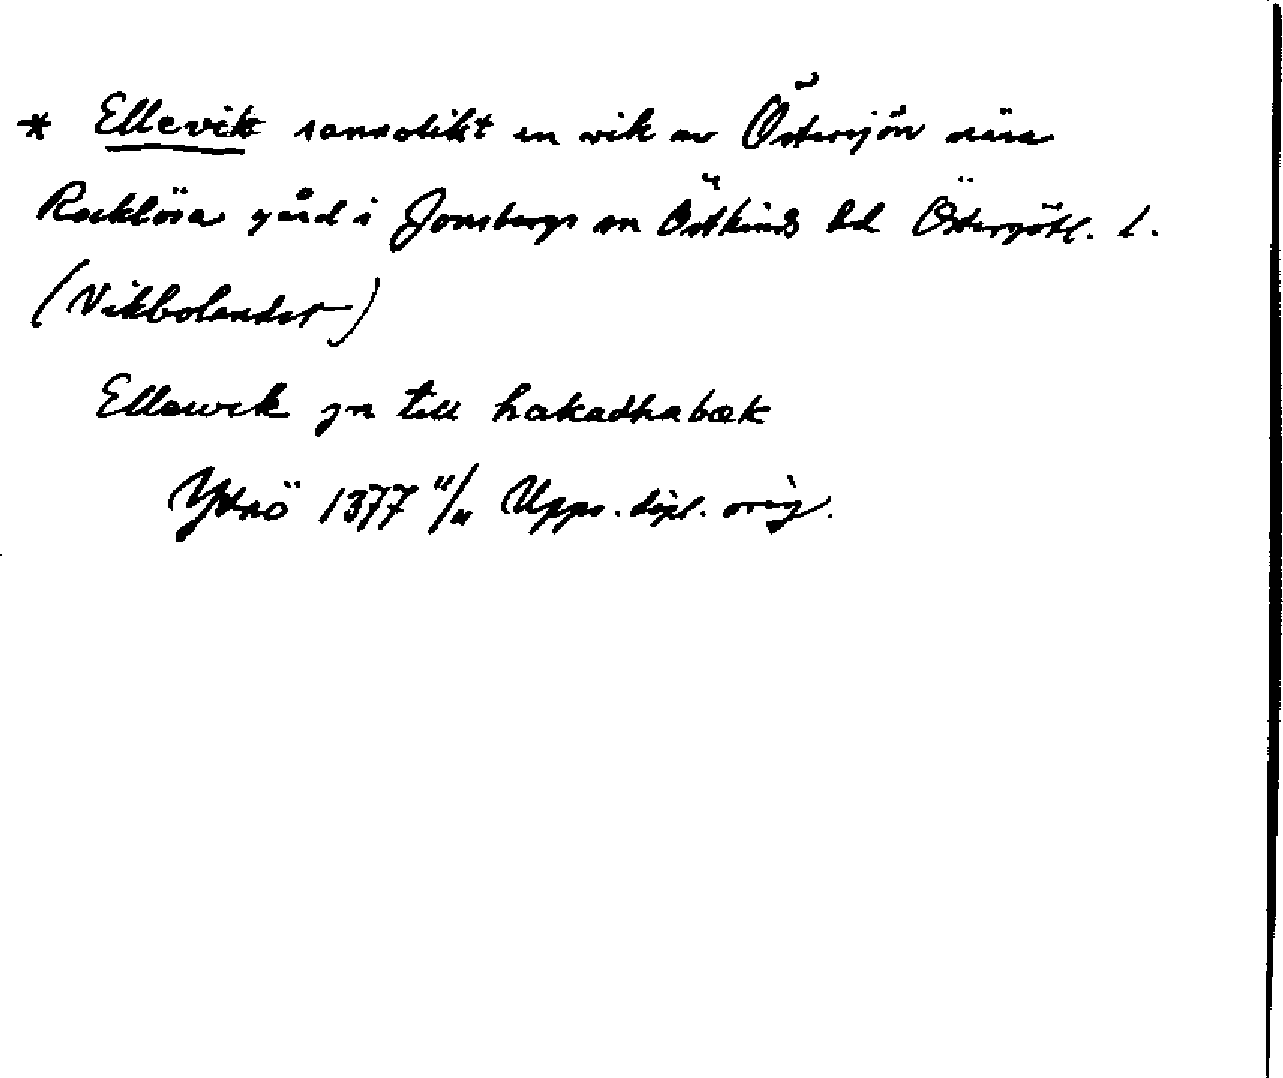 * Ellevik sannolikt en vik av Östersjön nära
Rocklösa gård i Jonsbergs sn Östkinds hd Östergötl. l.
(Vikbolandet)
Ellewik jn till hakadhabæk
Ytnö 1377 11/11 Upps. dipl. orig.